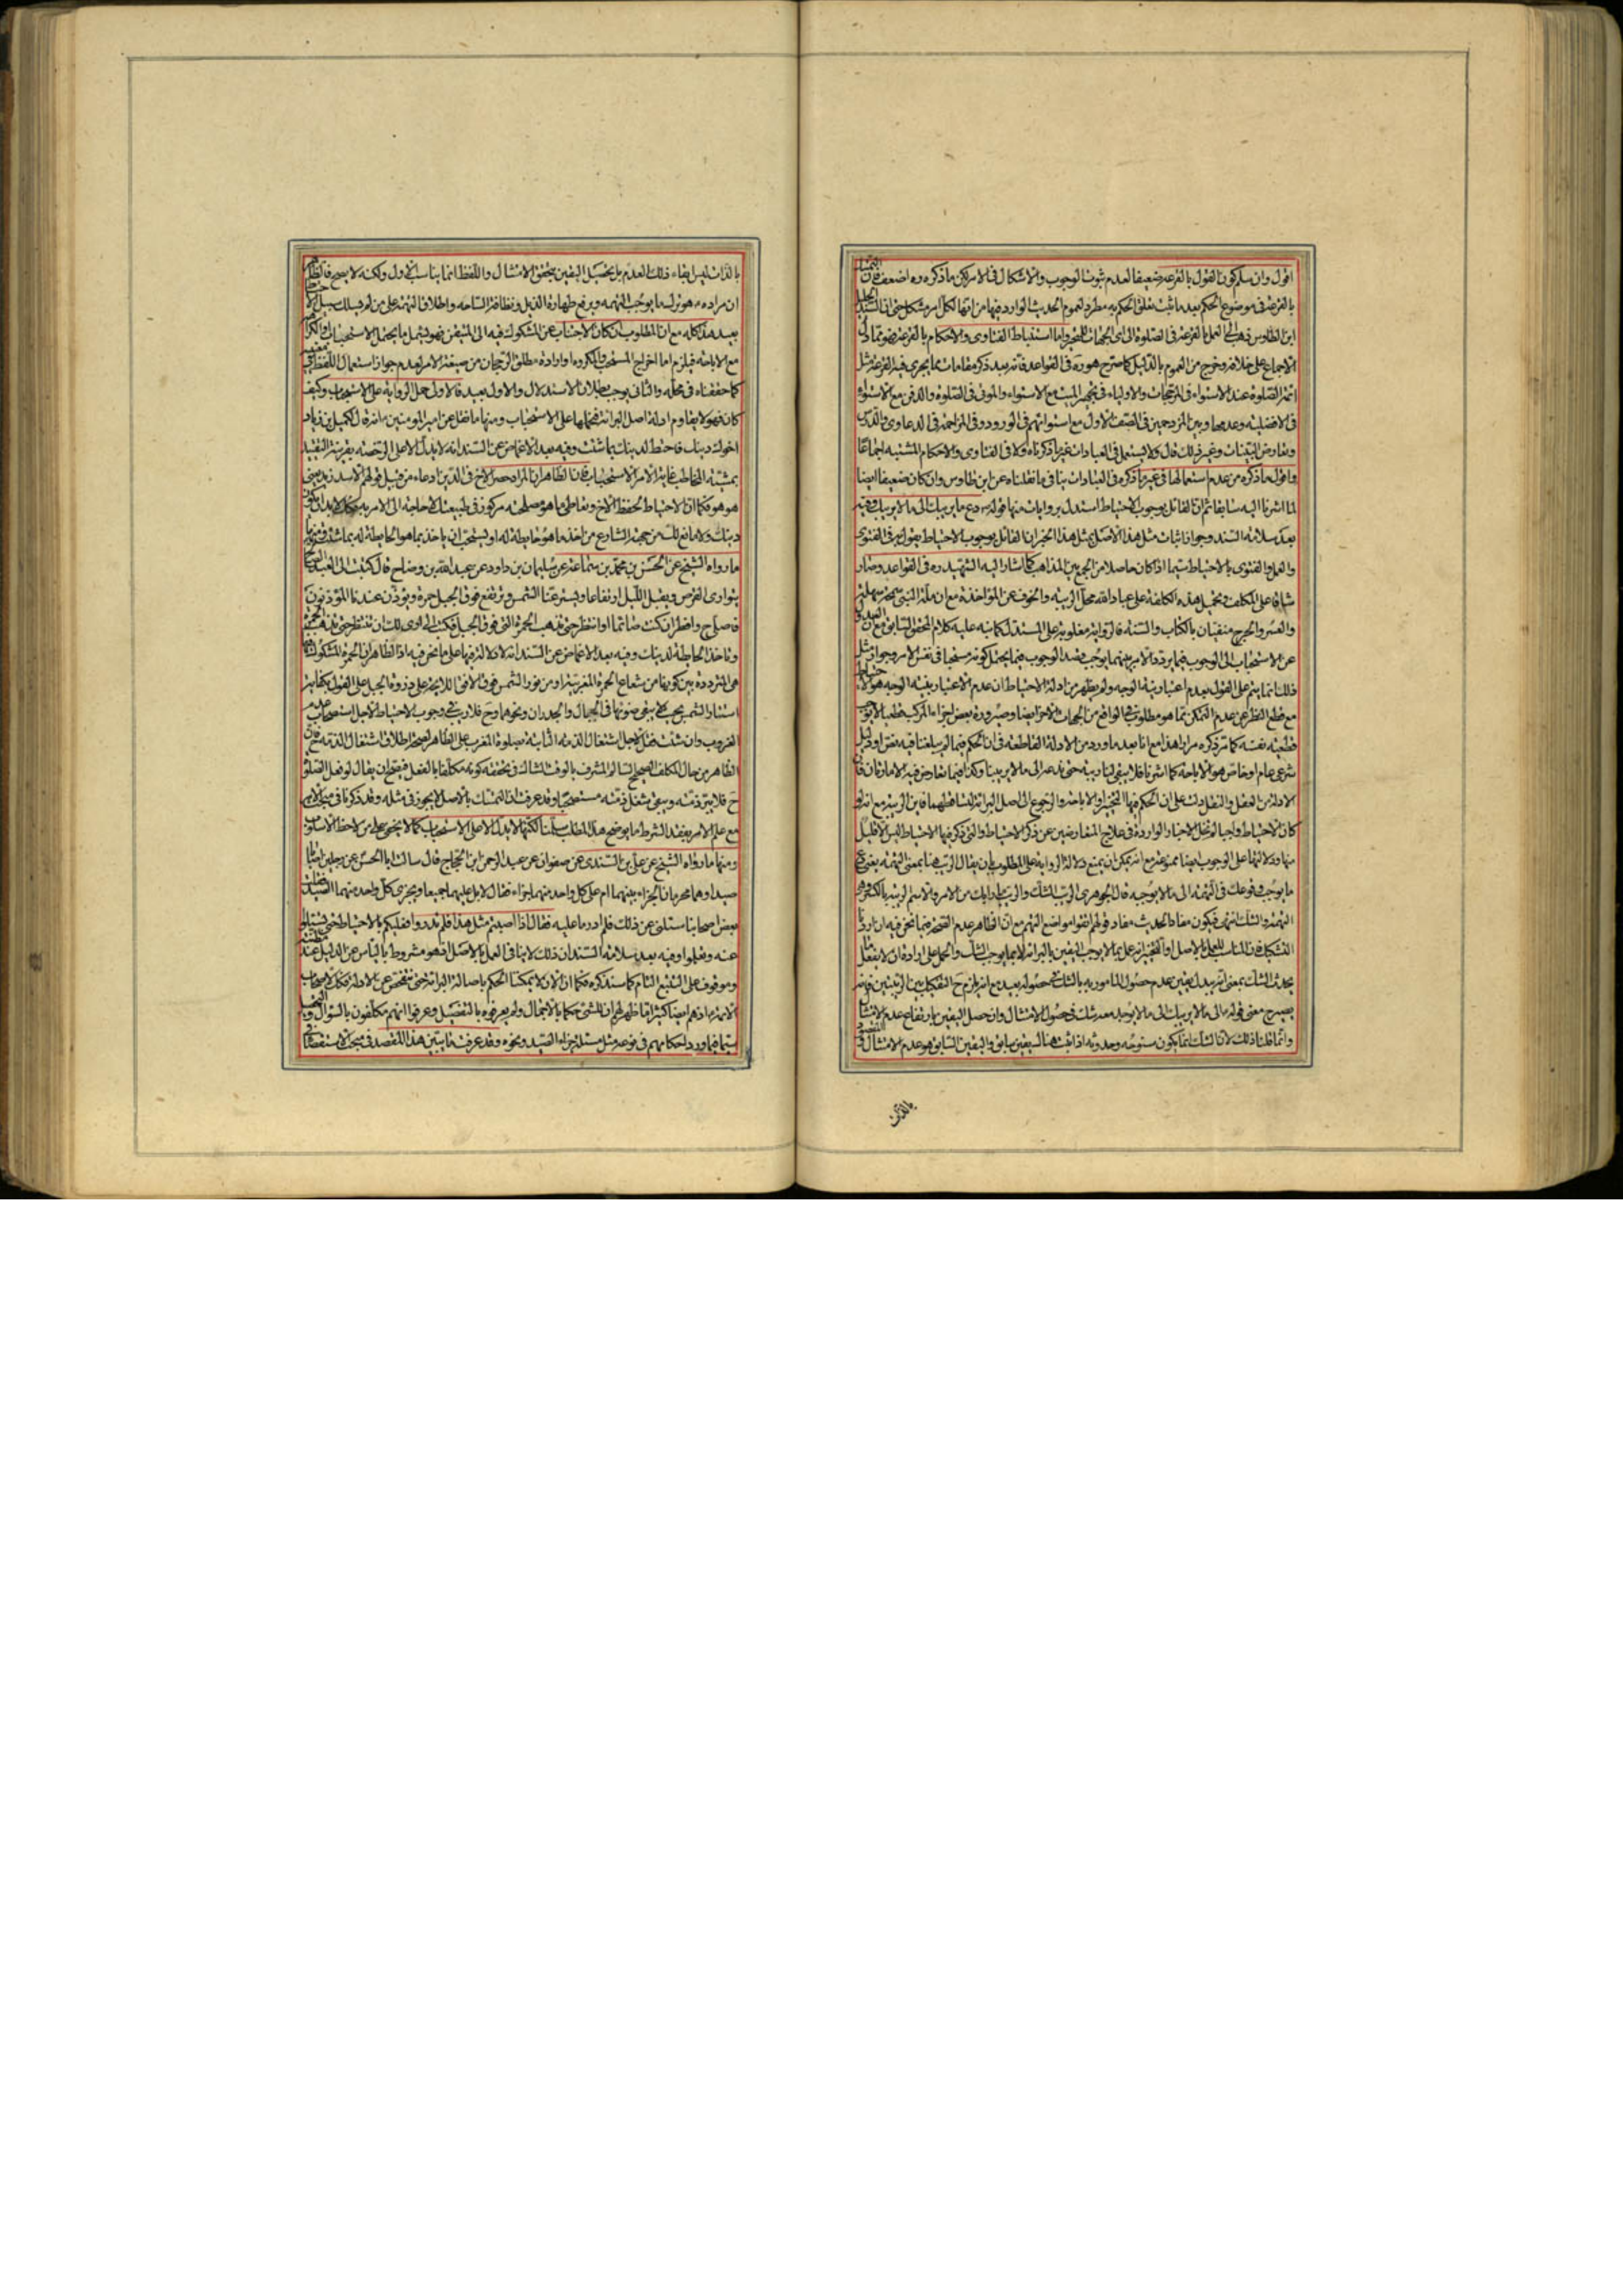 اقول وان سلم كون القول بالقرعة ضعيفا لعدم ثبوت الوجوب والاشكال فى الامر لكن ما ذكره ره اضعف فان التمسك
بالقرعة فى موضوع الحكم بعد ما ثبت تعلق الحكم به مطرد لعموم الحديث الوارد فيها من انها لكل امر مشكل حتى ان السيد الجليل
ابن الطاوس ذهب الى العمل بالقرعة فى الصلوة الى اى الجهات للتحير واما استنباط الفتاوى والاحكام بالقرعة فهو مما دل
الاجماع على خلافه وخرج من العموم بالدليل كما صرح هو ره فى القواعد فانه بعد ذكر مقامات ما يجرى فيه القرعة مثل
ائمة الصلوة عند الاستواء فى المرجحات والاولياء فى تجهيز الميت مع الاستواء والموتى فى الصلوة والدفن مع الاستواء
فى الافضلية وعدمها وبين المزدحمين فى الصف الاول مع استوائهم فى الورود وفى المزاحمة فى الدعاوى والدرس
وتعارض البينات وغير ذلك قال ولا يستعمل فى العبادات غير ما ذكرناه ولا فى الفتاوى والاحكام المشتبه اجماعا
واقول ما ذكره من عدم استعمالها فى غير ما ذكره فى العبادات ينافى ما نقلناه عن ابن طاوس وان كان ضعيفا ايضا
لما اشرنا اليه سابقا ثم ان القائل بوجوب الاحتياط استدل بروايات منها قوله ع دع ما يريبك الى ما لا يريبك وفيه
بعد سلامة السند وجواز اثبات مثل هذا الاصل بمثل هذا الخبر ان القائل بوجوب الاحتياط يقول به فى الفتوى
والعمل والفتوى بالاحتياط سيما اذا كان حاصلا من الجمع بين المذاهب كما اشار اليه الشهيد ره فى القواعد وصار
شاقا على المكلف وتحميل هذه الكلفة على عباد الله محل الريبة والخوف عن المؤاخذة مع ان ملة النبى سمحة سهلة
والعسر والحرج منفيان بالكتاب والسنة فالرواية مقلوبة على المستدل كما نبه عليه كلام المحقق السابق مع ان العدول
عن الاستحباب الى الوجوب فيما يردد الامر بينهما يوجب قصد الوجوب فيما يحتمل كونه مستحبا فى نفس الامر وجواز مثل
ذلك انما يتم على القول بعدم اعتبار نية الوجه ولم يظهر من ادلة الاحتياط ان عدم الاعتبار بنية الوجه هو الاحتياط
مع قطع النظر عن عدم التمكن مما هو مطلوب فى الواقع من الجهات الاخر ايضا وصيرورة بعض اجزاء المركب قطعيا لا يوجب
قطعية نفسه كما مر ذكره مرارا هذا مع انا بعد ما ورد من الادلة القاطعة فى ان الحكم فيما لم يبلغنا فيه نص او دليل
شرعى عام او خاص هو الاباحة كما اشرنا فلا يبقى لنا ريبة حتى ندعه الى ما لا يريبنا وكذا فيما تعارض فيه الامارتان فان
الادلة من العقل والنقل دلت على ان الحكم فيها التخيير او الاباحة والرجوع الى اصل البراءة لتساقطهما فاين الريبة مع انه لو
كان الاحتياط واجبا لم تخل الاخبار الواردة فى علاج المتعارضين عن ذكر الاحتياط والتى ذكر فيها الاحتياط ليس الا قليل
منها ودلالتها على الوجوب ايضا ممنوعة مع انه يمكن ان يمنع دلالة الرواية على المطلوب بان يقال الريب هنا بمعنى التهمة يعنى دع
ما يوجب وقوعك فى التهمة الى ما لا يوجبه قال الجوهرى الريب الشك والريب ما رابك من الامر والاسم الريبة بالكسر وهى
التهمة والشك انتهى فيكون مفاد الحديث مفاد قولهم اتقوا مواضع التهم مع ان الظاهر عدم الصحة فيما نحن فيه ان اريد
التشكيك فان المناسب للعمل بالاصل او التخيير انه عمل بما لا يوجب اليقين بالبراءة لا بما يوجب الشك والحمل على ارادة ان لا يفعل ما
يحدث الشك بمعنى تبديل يقين عدم حصول المامور به بالشك فى حصوله بعيد مع انه يلزم ح التفكيك بين الريبتين فانه
يصير ح معنى قوله الى ما لا يريبك الى ما لا يوجد معه شك فى حصول الامتثال وان حصل اليقين بارتفاع عدم الامتثال
وانما قلنا ذلك لان الشك انما يكون مسبوقه وحدوثه اذا ثبت هناك يقين سابق واليقين السابق هو عدم الامتثال والمقصود
بالذات
بالذات ليس ابقاء ذلك العدم بل تحصيل اليقين بتحقق الامتثال واللفظ انما يناسب الاول ولكنه لا يصح فالظاهر
ان مراده ع هو ترك ما يوجب التهمة ويرفع طهارة الذيل ونظافة الساحة واطلاق التهمة على من لم يسلك سبيل الاحتياط
بعيد هذا كله مع ان المطلوب ان كان الاجتناب عن المشكوك فيه الى المتيقن فهو يشمل ما يحتمل الاستحباب والكراهة
مع الاباحة فيلزم اما اخراج المستحب والمكروه او ارادة مطلق الرجحان من صيغة الامر لعدم جواز استعمال اللفظ فى معنييه
كما حققناه فى محله والثانى يوجب بطلان الاستدلال والاول بعيد فالاولى حمل الرواية على الاستحباب وكيف
كان فهو لا يقاوم ادلة اصل البراءة فيحملها على الاستحباب ومنها ما نقل عن امير المومنين ع انه قال لكميل بن زياد
اخوك دينك فاحتط لدينك بما شئت وفيه بعد الاغماض عن السند انه لا يدل الا على الرخصة بقرينة التقييد
بمشية المخاطب غاية الامر الاستحباب فان الظاهر ان المراد حصر الاخ فى الدين ادعاء من قبيل قولهم الاسد زيد يعنى
هو هو فكما ان الاحتياط لحفظ الاخ وتعاطى ما هو مصلحته مركوز فى طبيعتك لا حاجة الى الامر به فكذلك لا بد ان يكون
دينك ولا مانع لك من جهة الشارع من اخذ ما هو حايطة له او يستحب ان ياخذ بما هو الحايطة له بما شئت ومنها
ما رواه الشيخ عن الحسن بن محمد بن سماعة عن سليمان بن داود عن عبد الله بن وضاح قال كتبت الى العبد الصالح
يتوارى القرص ويقبل الليل ارتفاعا ويستر عنا الشمس وترتفع فوق الجبل حمرة ويؤذن عندنا المؤذنون
فاصلى ح وافطر ان كنت صائما او انتظر حتى تذهب الحمرة التى فوق الجبل فكتب الى ارى لك ان تنتظر حتى تذهب الحمرة
وتاخذ الحايطة لدينك وفيه بعد الاغماض عن السند انه لا دلالة فيها على ما نحن فيه اذ الظاهر ان الحمرة المشكوك فيها
هى المترددة بين كونها من شعاع الحمرة المغربية او من نور الشمس فوق الافق اللايحة على ذروة الجبل على القول بكفاية
استتار الشمس بحيث لا يبقى ضوئها فى الجبال والجدران ونحوهما وح فلا ريب فى وجوب الاحتياط لاجل استصحاب عدم
الغروب وان شئت فقل لاجل اشتغال الذمة الثابتة بصلوة المغرب على الظاهر لصحة اطلاق اشتغال الذمة فان
الظاهر من حال المكلف الصحيح السالم المشرف بالوقت الشاك فى تحققه كونه مكلفا بالفعل فيصح ان يقال لو فعل الصلوة
ح فلا يبرء ذمته ويبقى شغل ذمته مستصحبا وقد عرفت ان التمسك بالاصل لا يجوز فى مثله وقد ذكرنا فى مبحث الامر
مع علم الامر بفقد الشرط ما يوضح هذا المطلب سلمنا لكنها لا يدل الا على الاستحباب كما لا يخفى على من لاحظ الاسلوب
ومنها ما رواه الشيخ عن على بن السندى عن صفوان عن عبد الرحمن بن الحجاج قال سالت ابا الحسن ع عن رجلين اصابا
صيدا وهما محرمان الجزاء بينهما ام على كل واحد منهما جزاء فقال لا بل عليهما جميعا ويجزى كل واحد منهما الصيد فقلت ان
بعض اصحابنا سئلنى عن ذلك فلم ادر ما عليه فقال اذا اصبتم مثل هذا فلم تدروا فعليكم بالاحتياط حتى تسئلوا
عنه وتعلموا وفيه بعد سلامة السند ان ذلك لا ينافى العمل بالاصل اذ هو مشروط بالياس عن الدليل عند مظنته
وموقوف على التتبع التام كما سنذكره فكما ان الان لا يمكننا الحكم باصالة البراءة حتى نتفحص عن الادلة فكذا اصحاب
الائمة ع اذ هم ايضا كثيرا ما ظهر لهم ان للشئ حكما بالاجمال ولم يعرفوه بالتفصيل وعرفوا انهم مكلفون بالسؤال والتفحص
سيما فيما ورد احكام مهم فى نوعه مثل مسئلة جزاء الصيد ونحوه وقد عرفت ما يبين هذا المقصد فى مبحث الاستقصاء